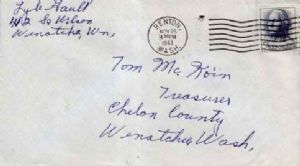 Lyle Gault
So Wilson
Wenatchee, Wn,
RENTON
NOV 26
PM
1963
WASH.
Tom Mc Koin
Treasurer
Chelon County
Wenatchee Wash,